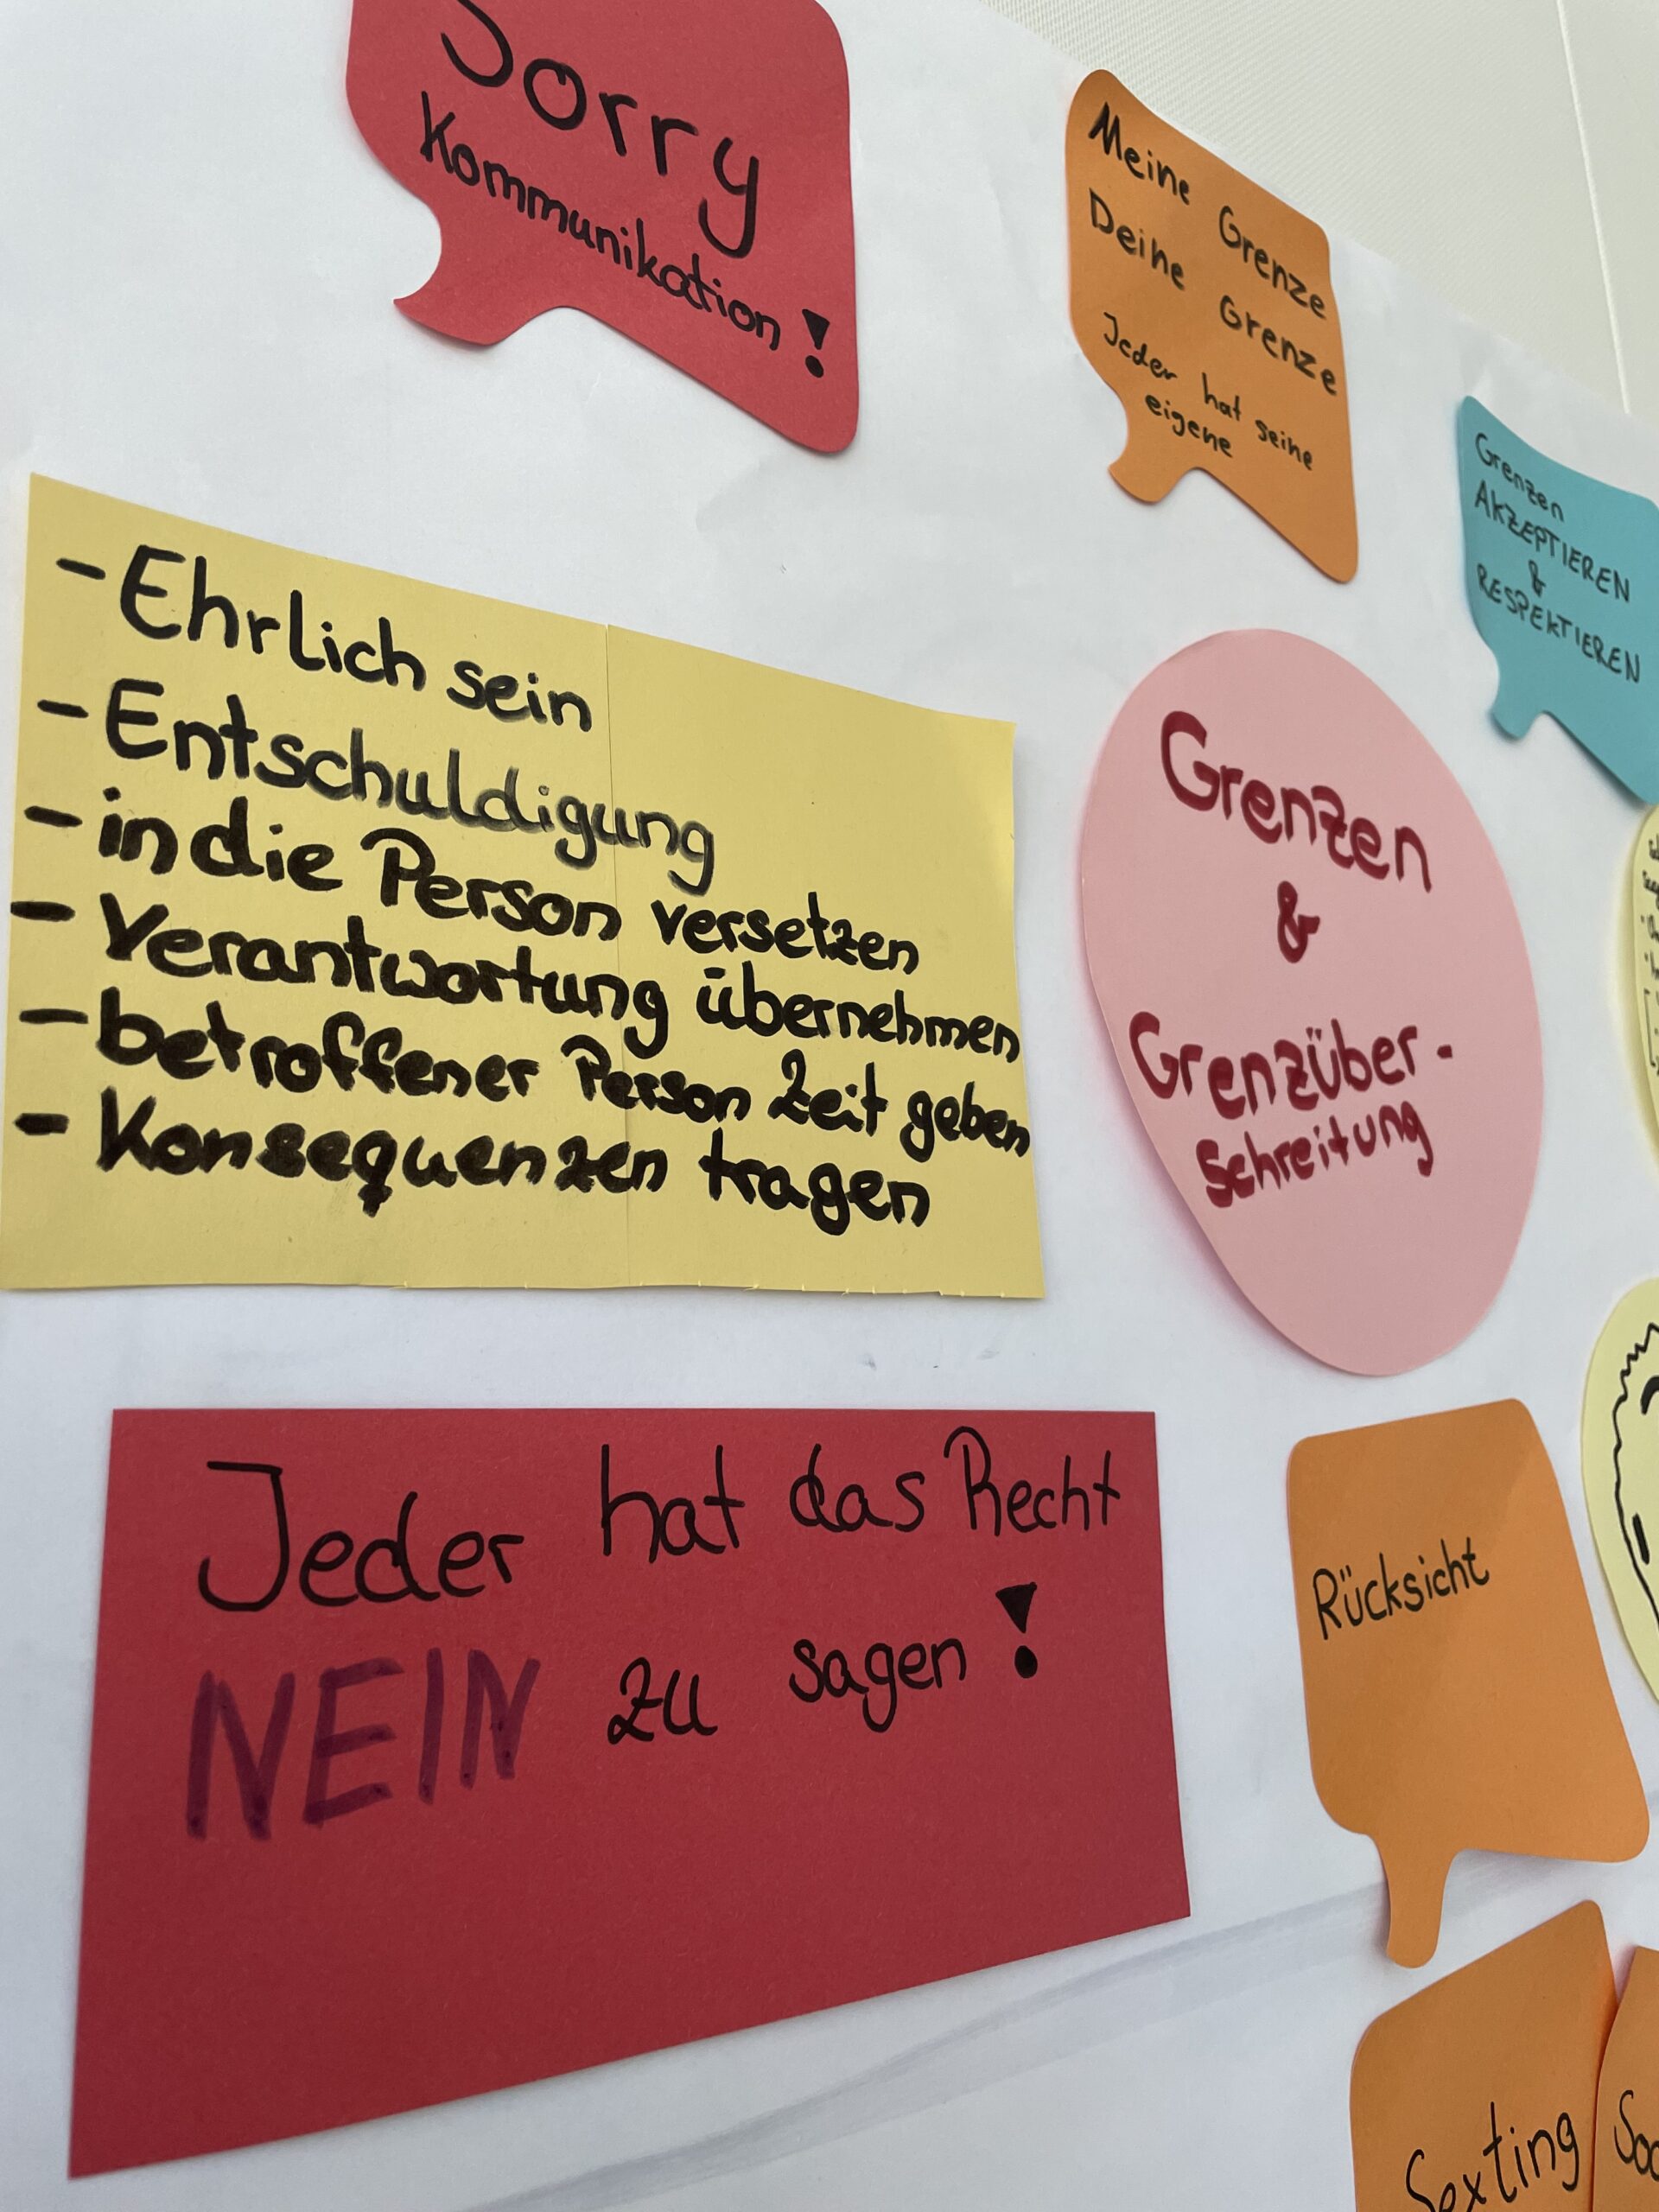 Sorry
Kommunikation!
Meine Grenze
Deine Grenze
Jeder hat seine
eigene
Grenzen
AKZEPTIEREN
&
RESPEKTIEREN
- Ehrlich sein
- Entschuldigung
- in die Person versetzen
- Verantwortung übernehmen
- betroffener Person Zeit geben
- Konsequenzen tragen
Grenzen
&
Grenzüber-
schreitung
Jeder hat das Recht
NEIN zu sagen!
Rücksicht
Sexting